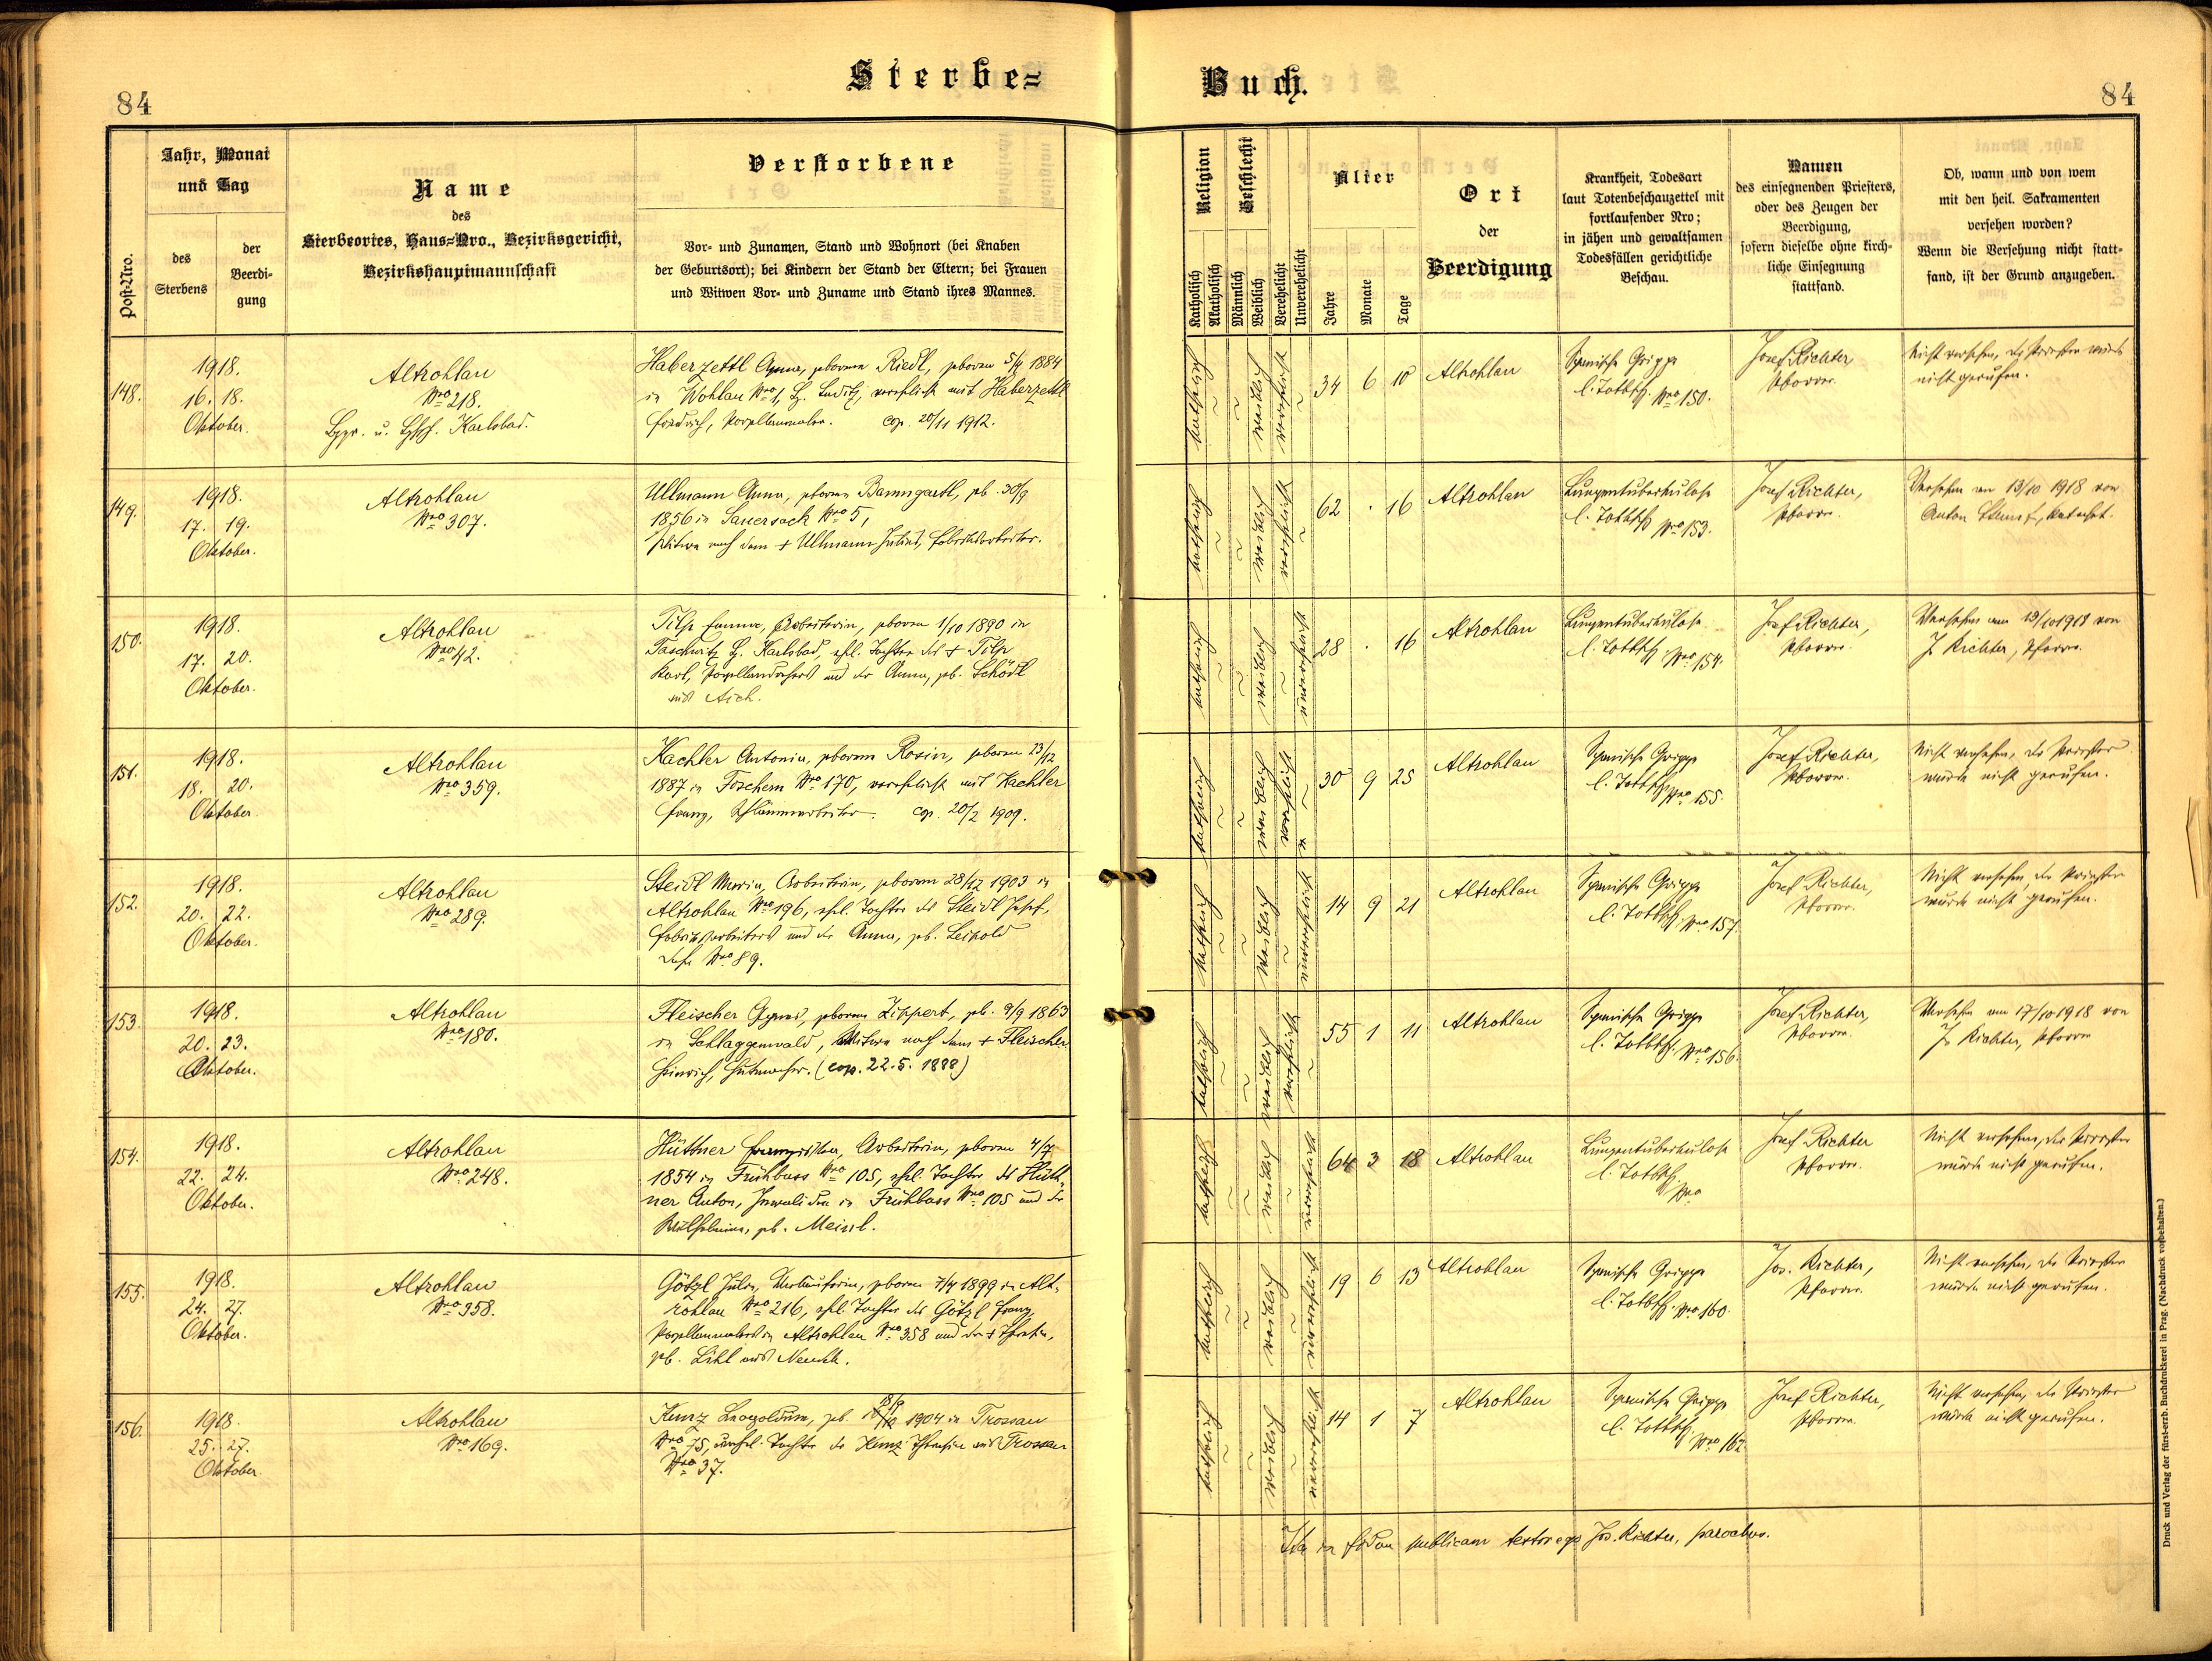 84
Sterbe=
Buch.
84
Post-Nro.
Jahr, Monat
und Tag
des
Sterbens
der
Beerdi-
gung
Name
des
Sterbeortes, Haus=Nro., Bezirksgericht,
Bezirkshauptmannschaft
Verstorbene
Vor- und Zunamen, Stand und Wohnort (bei Knaben
der Geburtsort); bei Kindern der Stand der Eltern; bei Frauen
und Witwen Vor- und Zuname und Stand ihres Mannes.
Religion
Katholisch
Akatholisch
Geschlecht
Männlich
Weiblich
Verehelicht
Unverehelicht
Alter
Jahre
Monate
Tage
Ort
der
Beerdigung
Krankheit, Todesart
laut Totenbeschauzettel mit
fortlaufender Nro;
in jähen und gewaltsamen
Todesfällen gerichtliche
Beschau.
Namen
des einsegnenden Priesters,
oder des Zeugen der
Beerdigung,
sofern dieselbe ohne kirch-
liche Einsegnung
stattfand.
Ob, wann und von wem
mit den heil. Sakramenten
versehen worden?
Wenn die Versehung nicht statt-
fand, ist der Grund anzugeben.
148.
1918.
16. 18.
Oktober.
Altrohlau
Nro 218.
Bzgr. u. Bzhsch. Karlsbad.
Haberzettl Anna, geborene Riedl, geboren 5/4 1884
in Wohlau Nro 1, Bz. Luditz, verehelicht mit Haberzettl
Friedrich, Porzellanmaler. cop. 20/11 1912.
katholisch
weiblich
verehelicht
34 6 10
Altrohlau
Spanische Grippe
l. Totbsch. Nro 150.
Josef Richter
Pfarrer.
Nicht versehen, der Priester wurde
nicht gerufen.
149.
1918.
17. 19.
Oktober.
Altrohlau
Nro 307.
Ullmann Anna, geborene Baumgartl, geb. 30/9
1856 in Sauersack Nro 5,
Witwe nach dem + Ullmann Julius, Fabriksarbeiter.
katholisch
weiblich
verehelicht
62 . 16
Altrohlau
Lungentuberkulose
l. Totbsch Nro 153.
Josef Richter,
Pfarrer.
Versehen am 13/10 1918 von
Anton Stumpf, Katechet.
150.
1918.
17. 20.
Oktober.
Altrohlau
Nro 42.
Tilp Emma, Arbeiterin, geboren 1/10 1890 in
Taschwitz Bz. Karlsbad, ehel. Tochter des + Tilp
Karl, Porzellandrehers und der Anna, geb. Schödl
aus Aich.
katholisch
weiblich
unverehelicht
28 . 16
Altrohlau
Lungentuberkulose
l. Totbsch Nro 154.
Josef Richter,
Pfarrer.
Versehen am 13/10 1918 von
J. Richter, Pfarrer.
151.
1918.
18. 20.
Oktober.
Altrohlau
Nro 359.
Kachler Antonia, geborene Rosin, geboren 23/12
1887 in Foschem Nro 170, verehelicht mit Kachler
Franz, Schlämmarbeiter. cop. 20/2 1909.
katholisch
weiblich
verehelicht
30 9 25
Altrohlau
Spanische Grippe
l. Totbsch Nro 155.
Josef Richter,
Pfarrer.
Nicht versehen, der Priester
wurde nicht gerufen.
152.
1918.
20. 22.
Oktober.
Altrohlau
Nro 289.
Steidl Maria, Arbeiterin, geboren 28/12 1903 in
Altrohlau Nro 196, ehel. Tochter des Steidl Josef,
Fabriksarbeiters und der Anna, geb. Leipold
Nro 89.
katholisch
weiblich
unverehelicht
14 9 21
Altrohlau
Spanische Grippe
l. Totbsch. Nro 157
Josef Richter,
Pfarrer.
Nicht versehen, der Priester
wurde nicht gerufen.
153.
1918.
20. 23.
Oktober.
Altrohlau
Nro 180.
Fleischer Agnes, geborene Lippert, geb. 9/9 1863
in Schlaggenwald, Witwe nach dem + Fleischer
Heinrich, Hutmacher. (cop. 22.5. 1888)
katholisch
weiblich
verehelicht
55 1 11
Altrohlau
Spanische Grippe
l. Totbsch. Nro 156.
Josef Richter,
Pfarrer.
Versehen am 17/10 1918 von
Jo Richter, Pfarrer
154.
1918.
22. 24.
Oktober.
Altrohlau
Nro 248.
Hüttner Franziska, Arbeiterin, geboren 4/7
1854 in Frühbuss Nro 105, ehel. Tochter des Hütt-
ner Anton, Invaliden in Frühbuss Nro 105 und der
Wilhelmine, geb. Meinl.
katholisch
weiblich
unverehelicht
64 3 18
Altrohlau
Lungentuberkulose
l. Totbsch.
Nro
Josef Richter
Pfarrer.
Nicht versehen, der Priester
wurde nicht gerufen.
155.
1918.
24. 27.
Oktober.
Altrohlau
Nro 358.
Götzl Julie, Verkäuferin, geboren 7/4 1899 in Alt-
rohlau Nro 216, ehel. Tochter des Götzl Franz,
Porzellanmalers in Altrohlau Nro 358 und der + Theresia,
geb. Lihl aus Neudek.
katholisch
weiblich
unverehelicht
19 6 13
Altrohlau
Spanische Grippe
l. Totbsch. Nro 160.
Jos. Richter,
Pfarrer.
Nicht versehen, der Priester
wurde nicht gerufen.
156.
1918.
25. 27.
Oktober.
Altrohlau
Nro 169.
18/9
Kunz Leopoldine, geb. 1904 in Trossau
Nro 75, unehel. Tochter der Kunz Theresia aus Trossau
Nro 37.
katholisch
weiblich
unverehelicht
14 1 7
Altrohlau
Spanische Grippe
l. Totbsch.
Nro 162
Josef Richter,
Pfarrer.
Nicht versehen, der Priester
wurde nicht gerufen.
Ita in fidem publicam testor ego Jos. Richter, parochus.
Druck und Verlag der fürst-erzb. Buchdruckerei in Prag. (Nachdruck vorbehalten.)